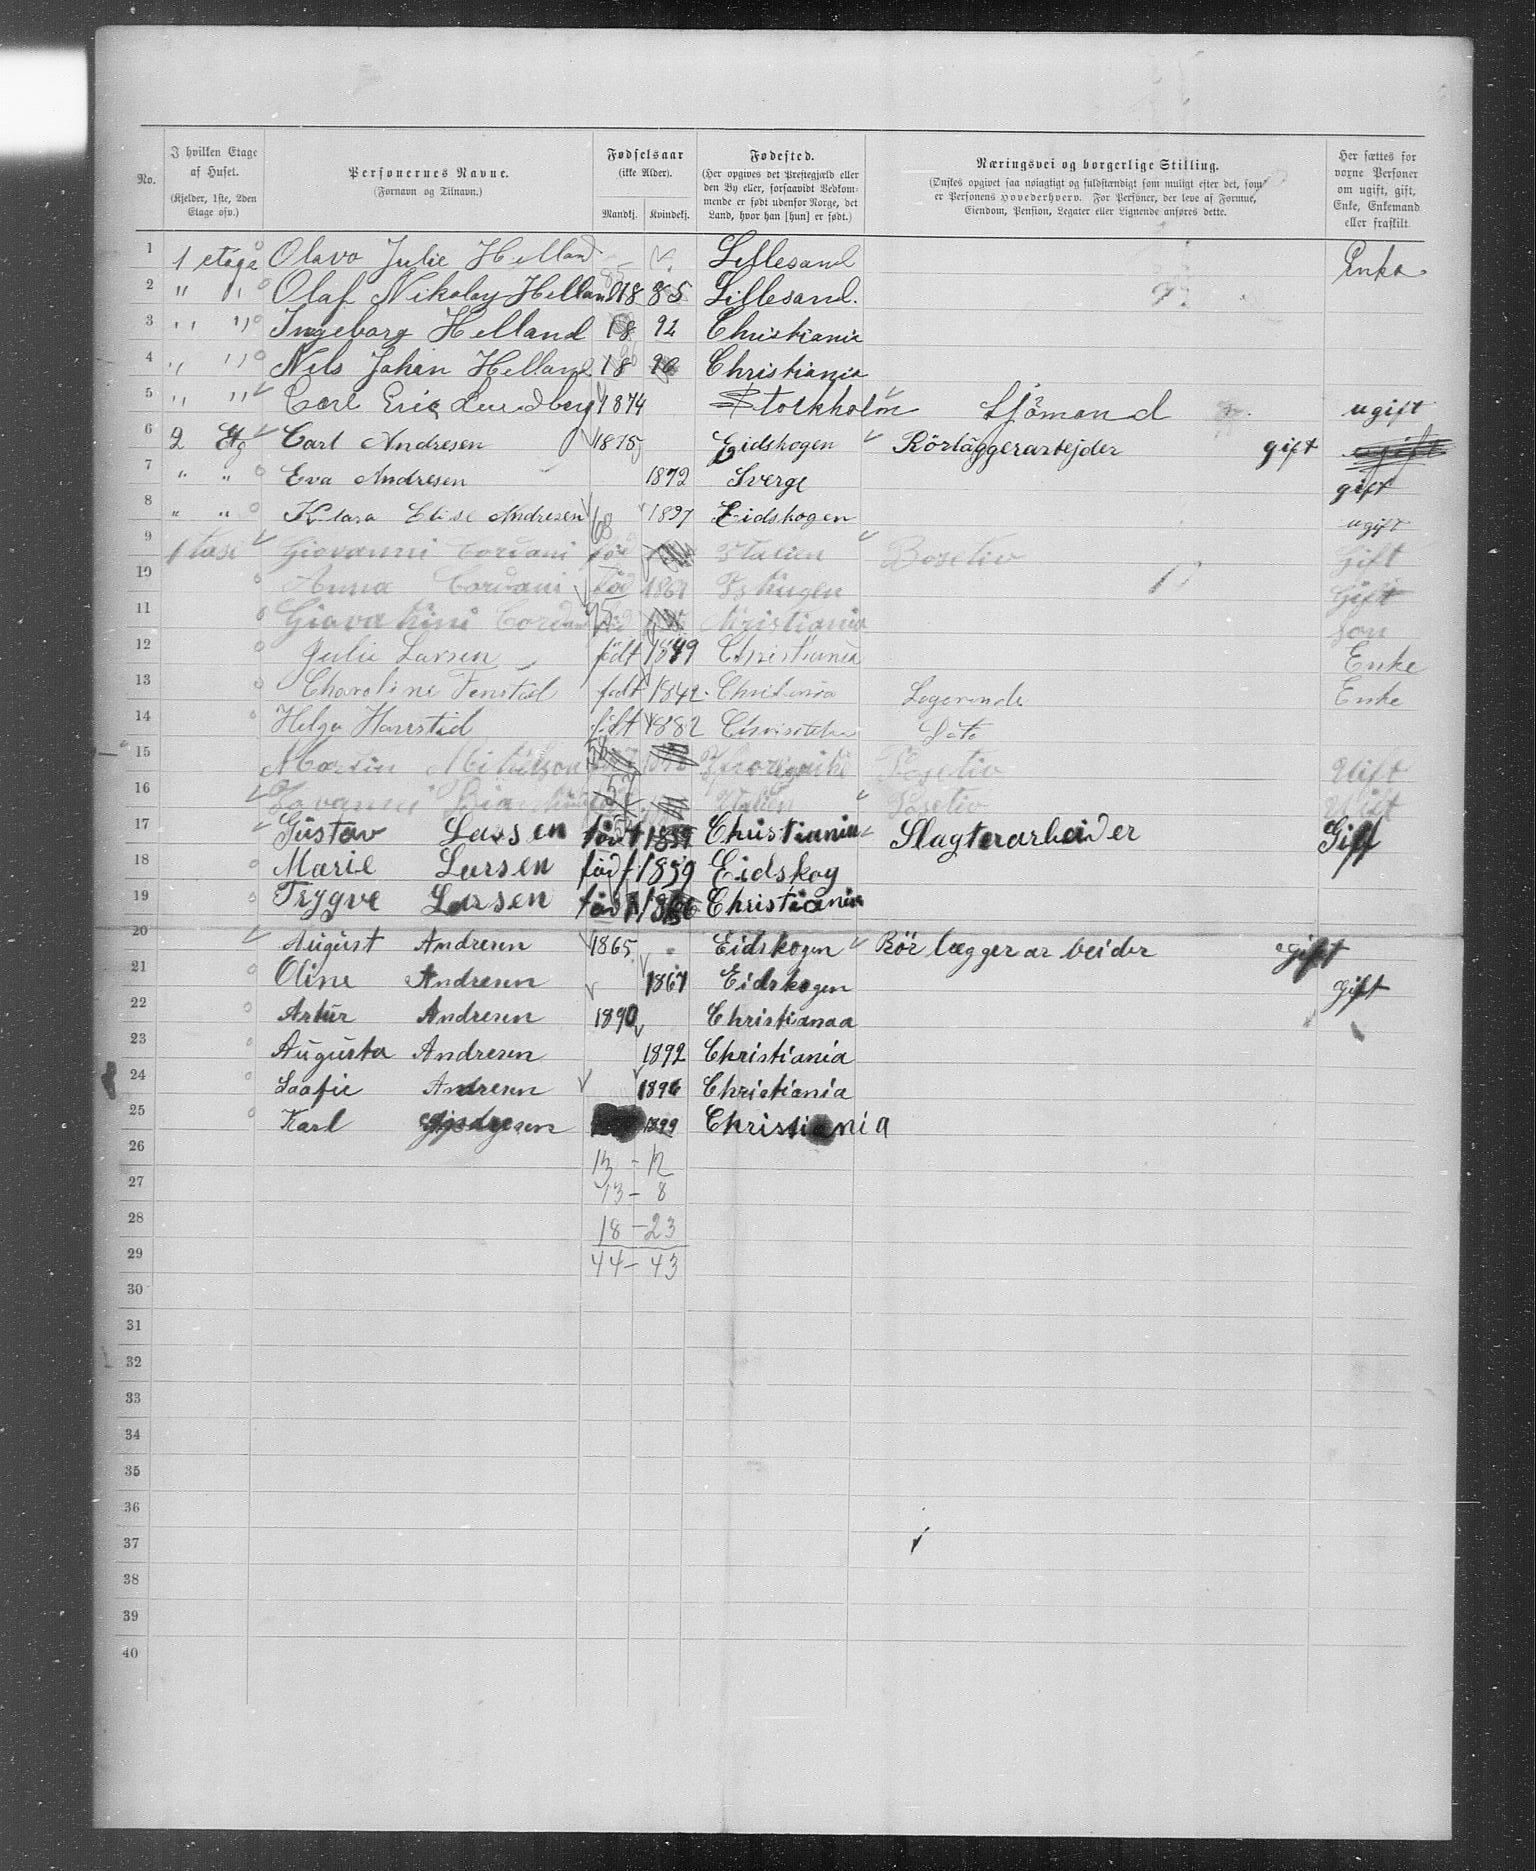 No.
I hvilken Etage af Huset. (Kjelder, 1ste, 2den Etage osv.)
Personernes Navne. (Fornavn og Tilnavn.)
Fødselsaar (ikke Alder). Mandkj. Kvindekj.
Fødested. (Her opgives det Prestegjæld eller den By eller, forsaavidt Vedkommende er født udenfor Norge, det Land, hvor han [hun] er født.)
Næringsvei og borgerlige Stilling. (Ønskes opgivet saa nøiagtigt og fuldstændigt som muligt efter det, som er Personens Hovederhverv. For Personer, der leve af Formue, Eiendom, Pension, Legater eller Lignende anføres dette.
Her sættes for voxne Personer om ugift, gift, Enke, Enkemand eller fraskilt.
1 1 etage Olava Julie Helland Lillesand Enke
2 " " Olaf Nikolay Helland 18 85 Lillesand.
3 " " Ingeborg Helland 18 92 Christiania
4 " " Nils Johan Helland 18 96 Christiania
5 " " Carl Eric Lundberg 1874 Stockholm Sjömand ugift
6 2 Etg Carl Andresen 1875 Eidskogen Rörläggerarbejder gift
7 " " Eva Andresen 1872 Sverge gift
8 " " Klara Elise Andresen 1897 Eidskogen ugift
9 1 Giovanni Cordani 68 Italien Posetiv Gift
10 Anna Cordani föd 1861 Gift
11 Cordani 95 Kristiania Son
12 Julie Larsen födt 1849 Christiania Enke
13 Charoline födt 1842. Logerende Enke
14 Helga födt 1882
15 Martin Posetiv Ugift
16 57 Italien Posetiv Ugift
17 Gustav Larsen födt Christiania Slagterarbeider Gift
18 Marie Larsen födt 1859 Eidskog
19 Trygve Larsen födt Christiania
20 August Andresen 1865 Eidskogen Rörlæggerarbeider gift
21 Oline Andresen 1867 Eidskogen gift
22 Artur Andresen 1890 Christianaa
23 Augusta Andresen 1892 Christiania
24 Soofie Andresen 1896 Christiania
25 Karl Andresen 1899 Christiania
26 13 - 12
27 13 - 8
28 18 - 23
29 44 - 43
30
31
32
33
34
35
36
37
38
39
40